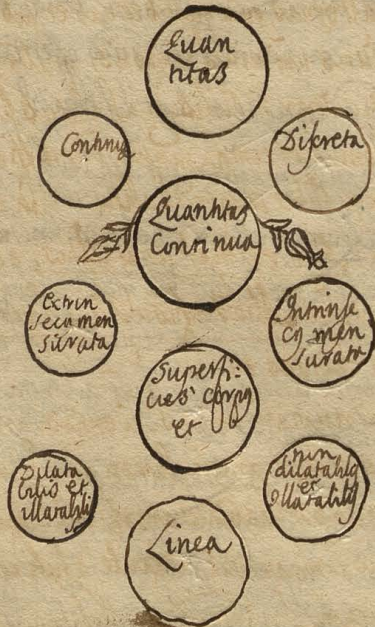 Quan
titas
Continua
Discreta
Quantitas
Continua
Extrin
seca men
surata
Intrinse
men
surata
Superfi:
cies corpq
et
Dilata
bilis et
non
dilatabilis
et
Linea